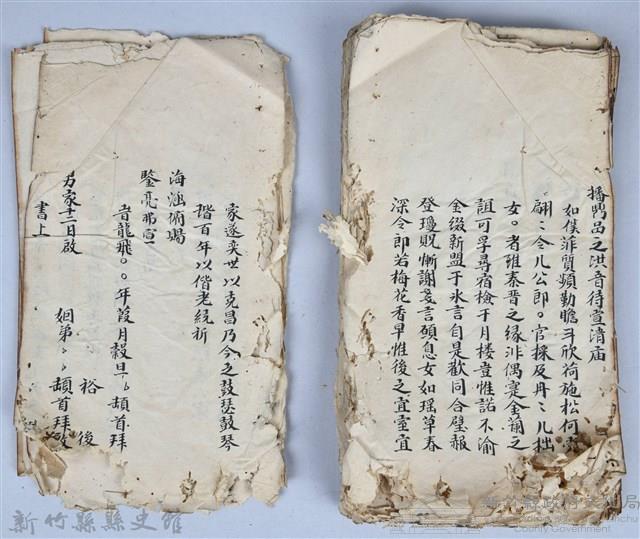 播鬯品之洪音待壹清庙
如僕菲質頻勤瞻斗欣荷施松何
翩〻令儿公郎。官採及冉〻儿拙
女。者雖秦晋之緣非偶寔金蘭之
誼可孚尋宿檢于月楼豈惟諾不渝
金缀新盟于氷言自是歡同合璧報
登瓊貺慚謝妄言碩息女如瑶草春
深令郎若梅花香早惟後之宜室宜
家遂奕世以克昌乃今之鼓瑟鼓琴
瑎百年以偕老統祈
海涵
鑒亮弗宣
旹龍飛。。年葭月榖旦〻頡首拜
裕後
十二日啟
姻弟〻〻頡首拜
書上
新竹縣縣史館
新竹縣政府文化局
County Government